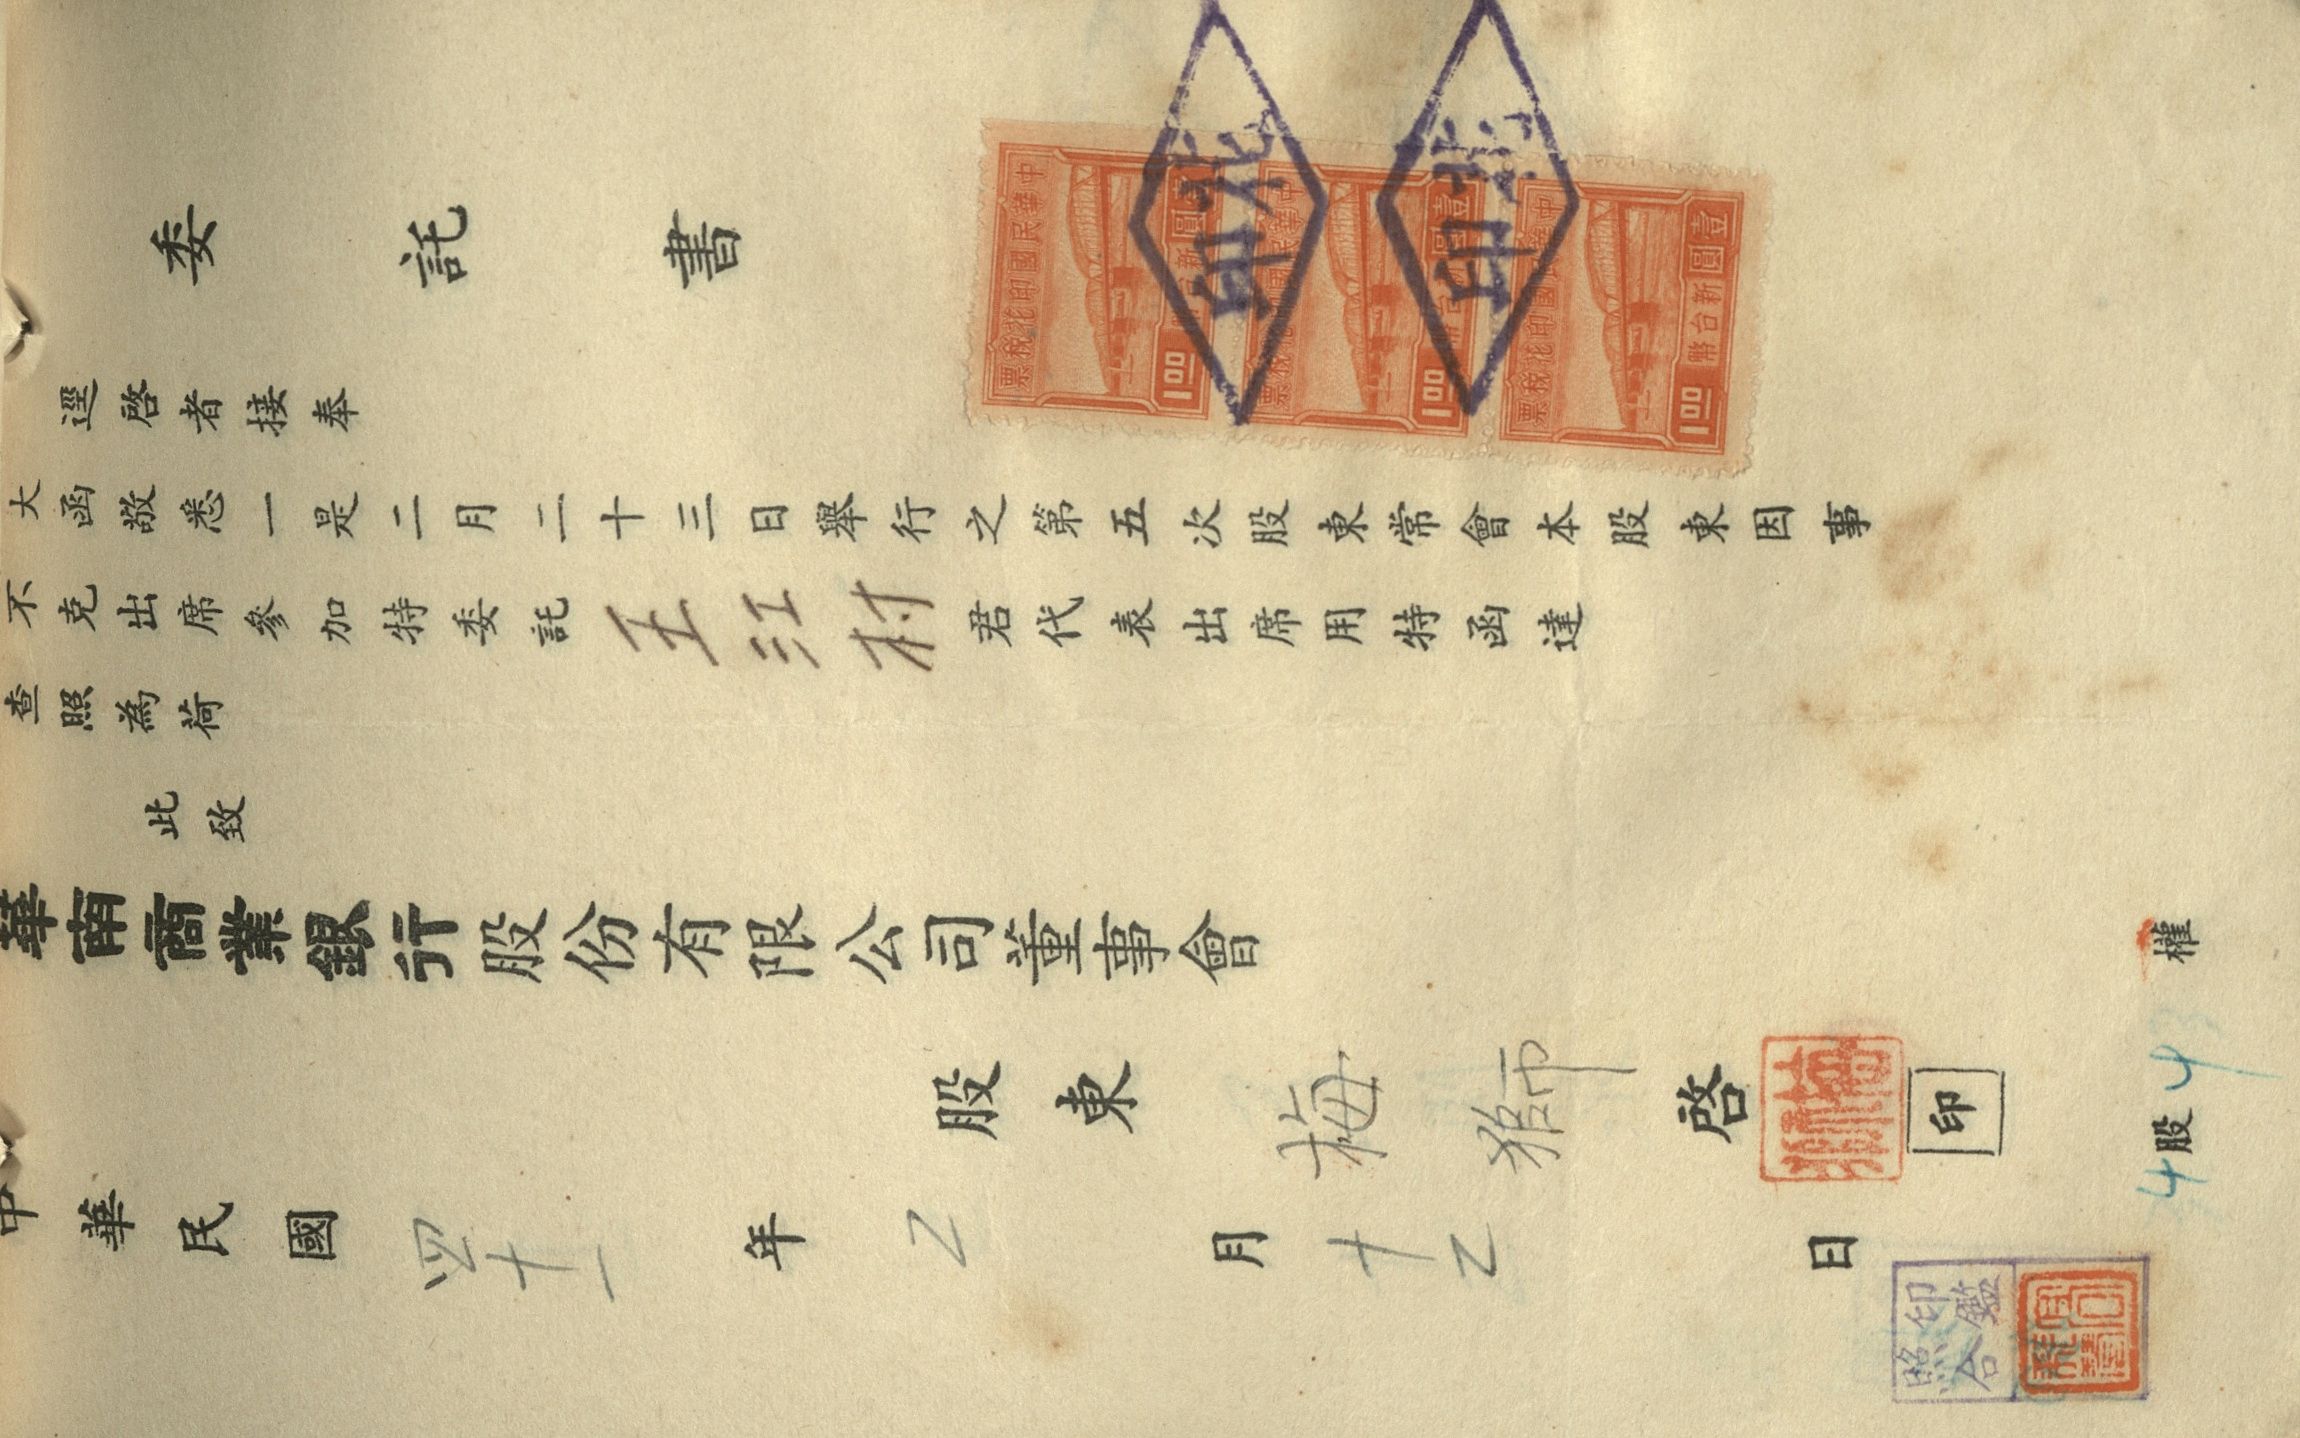 委託書
逕啓者接奉
大函敬悉一是二月二十三日舉行之第五次股東常會本股東因事
不克出席參加特委託王江村君代表出席用特函達
查照為荷
此致
華南商業銀行股份有限公司董事會
股東 梅獅 啓 印
中華民國四十一年乙月十乙日
股 43 權
中華民國印花稅票
壹圓 新台幣
1.00
中華民國印花稅票
壹圓 新台幣
1.00
中華民國印花稅票
壹圓 新台幣
1.00
印鑑
照合